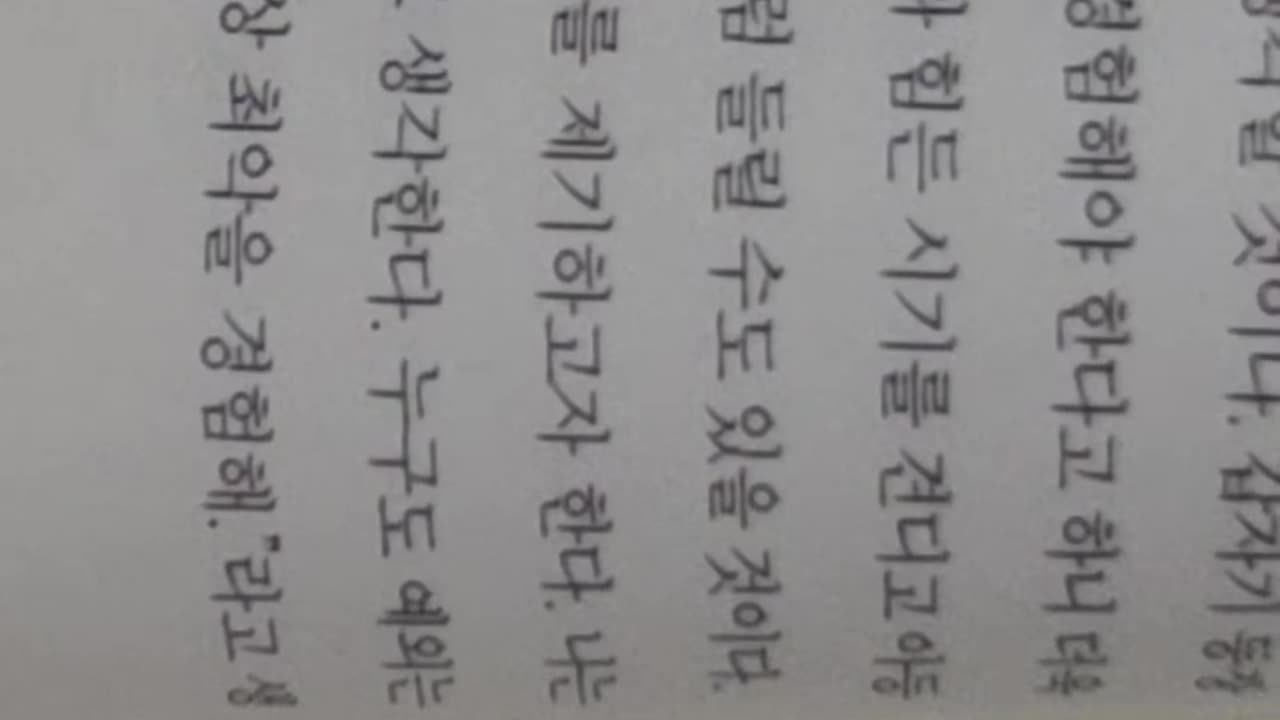 것이다. 갑자기 등장
경험해야 한다고 하니 더욱
힘든 시기를 견디고 아등
럼 들릴 수도 있을 것이다.
를 제기하고자 한다. 나는
생각한다. 누구도 예외는
상 최악을 경험해."라고 생